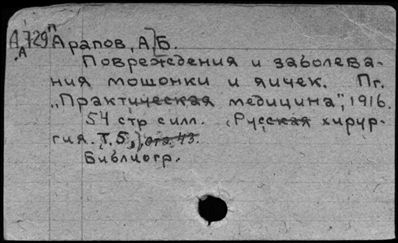 А 729 п
А
Арапов, А.Б.
Повреждения и заболева-
ния мошонки и яичек. Пг.
„Практическая медицина", 1916.
54 стр силл. (Русская хирур-
гия. Т.5,) отд. 43.
Библиогр.